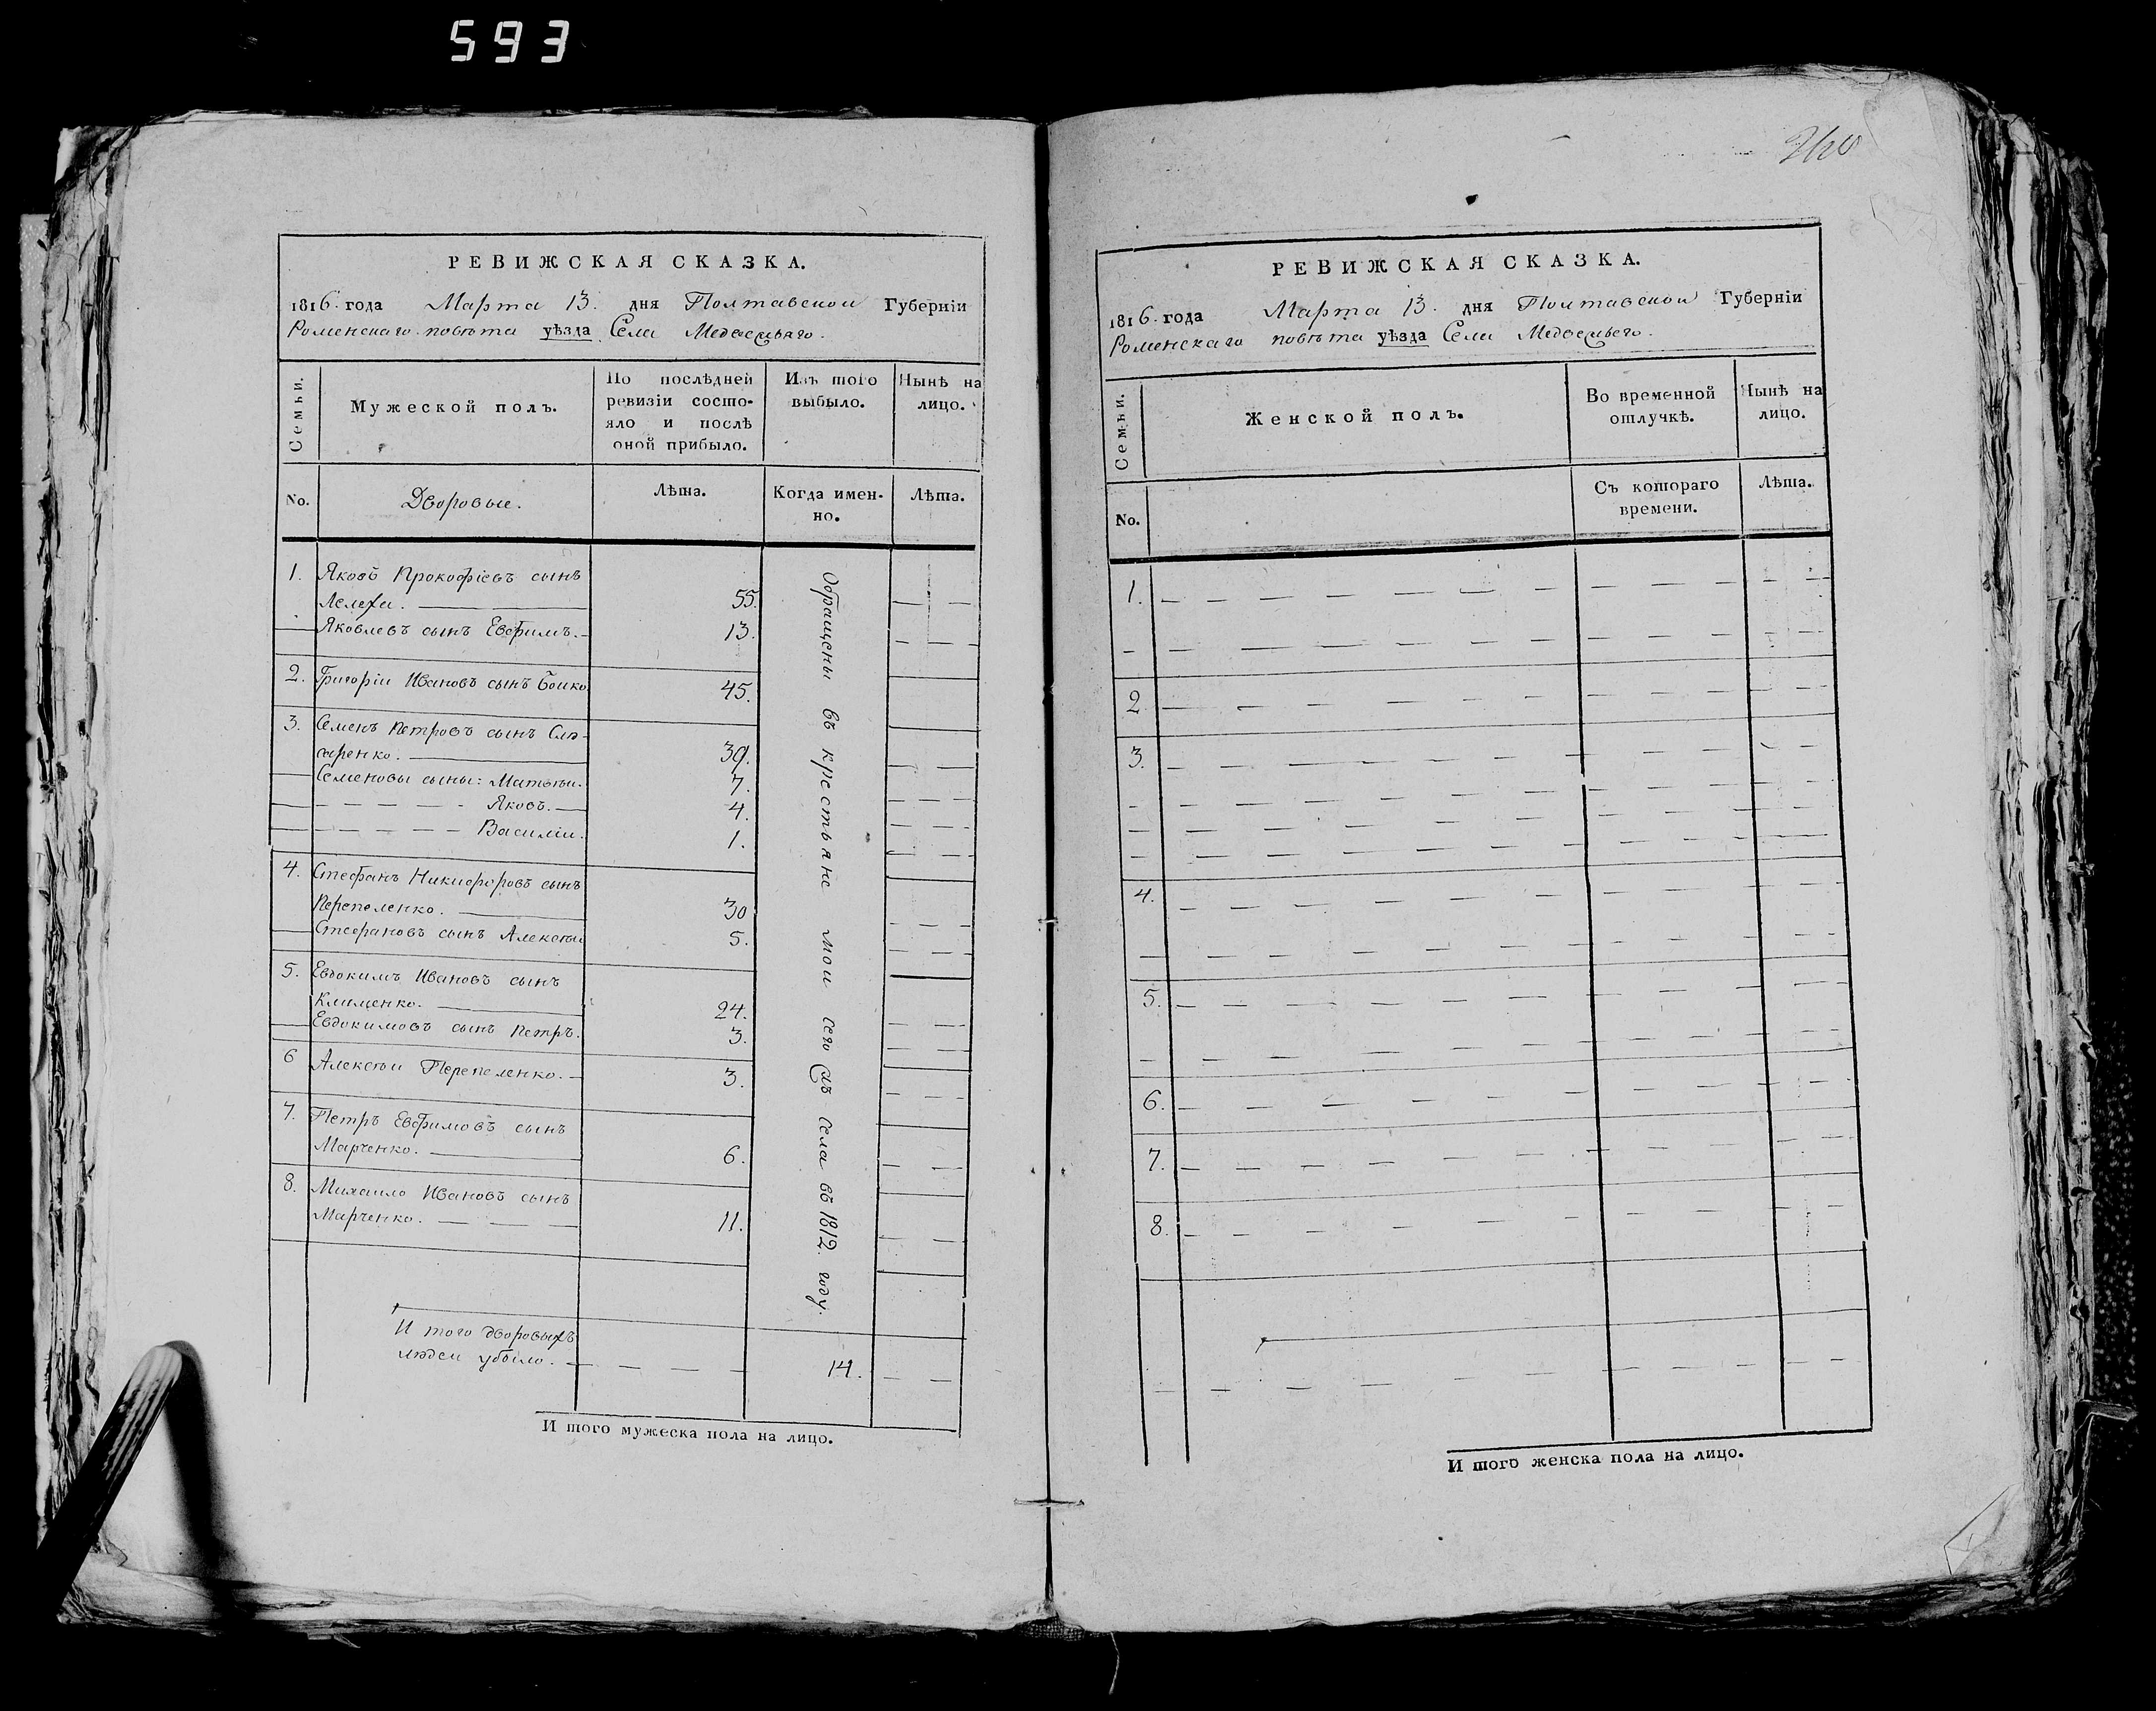 593
РЕВИЖСКАЯ СКАЗКА.
1816. года Марта 13. дня Полтавской Губерніи
Роменскаго повѣта уѣзда Села Медвежьяго.
Семьи.
Мужеской полъ.
По послѣдней
ревизіи состо-
яло и послѣ
оной прибыло.
Изъ того
выбыло.
Нынѣ на
лицо.
No.
Дворовые.
Лѣта.
Когда имен-
но.
Лѣта.
1. Яковъ Прокофіевъ сынъ
Лелеха. 55.
Яковлевъ сынъ Евфимъ. 13.
2. Григоріи Ивановъ сынъ Боико 45.
3. Семенъ Петровъ сынъ Слю-
саренко. 39.
Семеновы сыны: Матвѣи. 7.
Яковъ. 4.
Василіи. 1.
4. Стефанъ Никифоровъ сынъ
Перепеленко. 30
Стефановъ сынъ Алексѣи 5.
5. Евдокимъ Ивановъ сынъ
Клименко. 24.
Евдокимовъ сынъ Петръ. 3.
6 Алексѣи Перепеленко. 3.
7. Петръ Евфимовъ сынъ
Марченко. 6.
8. Михаило Ивановъ сынъ
Марченко. 11.
Обращены въ крестьяне мои сего села въ 1812. году.
И того дворовыхъ
людеи убыло. 14.
И того мужеска пола на лицо.
РЕВИЖСКАЯ СКАЗКА.
1816. года Марта 13. дня Полтавской Губерніи
Роменскаго повѣта уѣзда Села Медвежьего.
Семьи.
Женской полъ.
Во временной
отлучкѣ.
Нынѣ на
лицо.
No.
Съ котораго
времени.
Лѣта.
1.
2
3.
4.
5.
6.
7.
8.
И того женска пола на лицо.